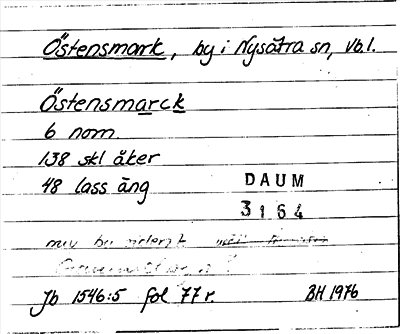 Östensmark, by i Nysätra sn, Vb.l.
Östensmarck
6 nom.
138 skl åker
48 lass äng
DAUM
3164
Jb 1546:5 fol 77 r.
BH 1976